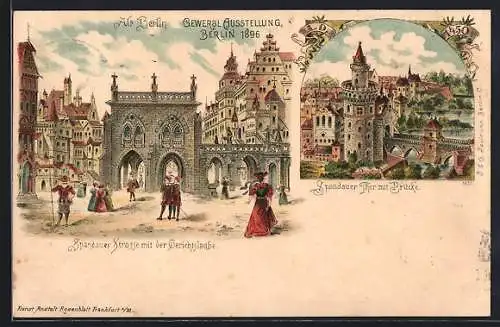 Alt Berlin
GEWERBE AUSSTELLUNG,
BERLIN 1896
1450
Spandauer Strasse mit der Gerichtslaube.
Spandauer Thor mit Brücke.
Kunst Anstalt Rosenblatt Frankfurt a/M.